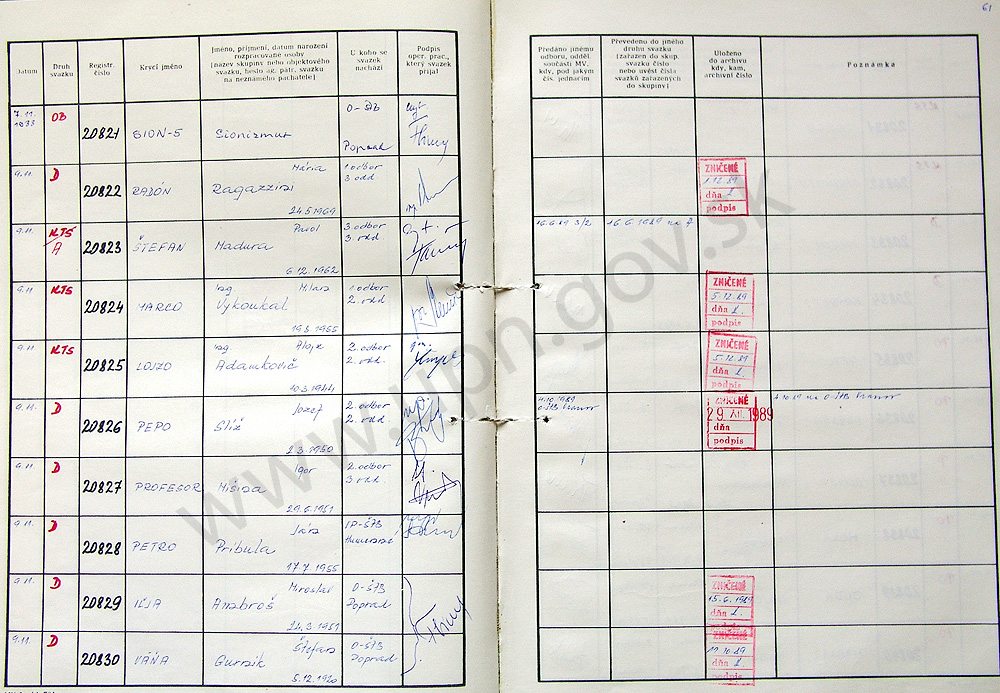 61
Datum
Druh svazku
Registr. číslo
Krycí jméno
Jméno, příjmení, datum narození
rozpracované osoby
(název skupiny nebo objektového
svazku, heslo ag. pátr. svazku
na neznámého pachatele)
U koho se
svazek
nachází
Podpis
oper. prac.,
který svazek
přijal
Předáno jinému
odboru, odděl.
součásti MV,
kdy, pod jakým
čís. jednacím
Převedeno do jiného
druhu svazku
(zařazen do skup.
svazku číslo
nebo uvést čísla
svazků zařazených
do skupiny)
Uloženo
do archivu
kdy, kam,
archivní číslo
Poznámka
7.11. 1988 OB 20821 SION-5 Sionizmus O-ŠtB Poprad
9.11. D 20822 RADÓN Mária Ragazzini 24.5.1969 1.odbor 3.odd
ZNIČENÉ
1.12.89
dňa
podpis
9.11. KTS A 20823 ŠTEFAN Pavol Madura 6.12.1962 3.odbor 3.odd
16.6.89 3/2 16.6.1989 na A
9.11. KTS 20824 MARCO Ing. Milan Vykoukal 19.3.1955 1.odbor 2.odd
ZNIČENÉ
5.12.89
dňa
podpis
9.11. KTS 20825 LOJZO Ing. Alojz Adamkovič 10.3.1944 2.odbor 2.odd.
ZNIČENÉ
5.12.89
dňa
podpis
9.11. D 20826 PEPO Jozef Slíž 2.3.1950 2.odbor 2.odd.
4.10.1989
ZNIČENÉ
29.XII.1989
dňa
podpis
9.11. D 20827 PROFESOR Igor 29.6.1951 2.odbor 3.odd
9.11. D 20828 PETRO Ján Pribula 17.7.1955 IP-ŠtB Humenné
9.11. D 20829 IĽJA Miroslav Ambroš 24.3.1951 O-ŠtB Poprad
ZNIČENÉ
15.6.1989
dňa
podpis
9.11. D 20830 VÁŇA Štefan Gurník 5.12.1920 O-ŠtB Poprad
ZNIČENÉ
dňa
podpis
www.upn.gov.sk